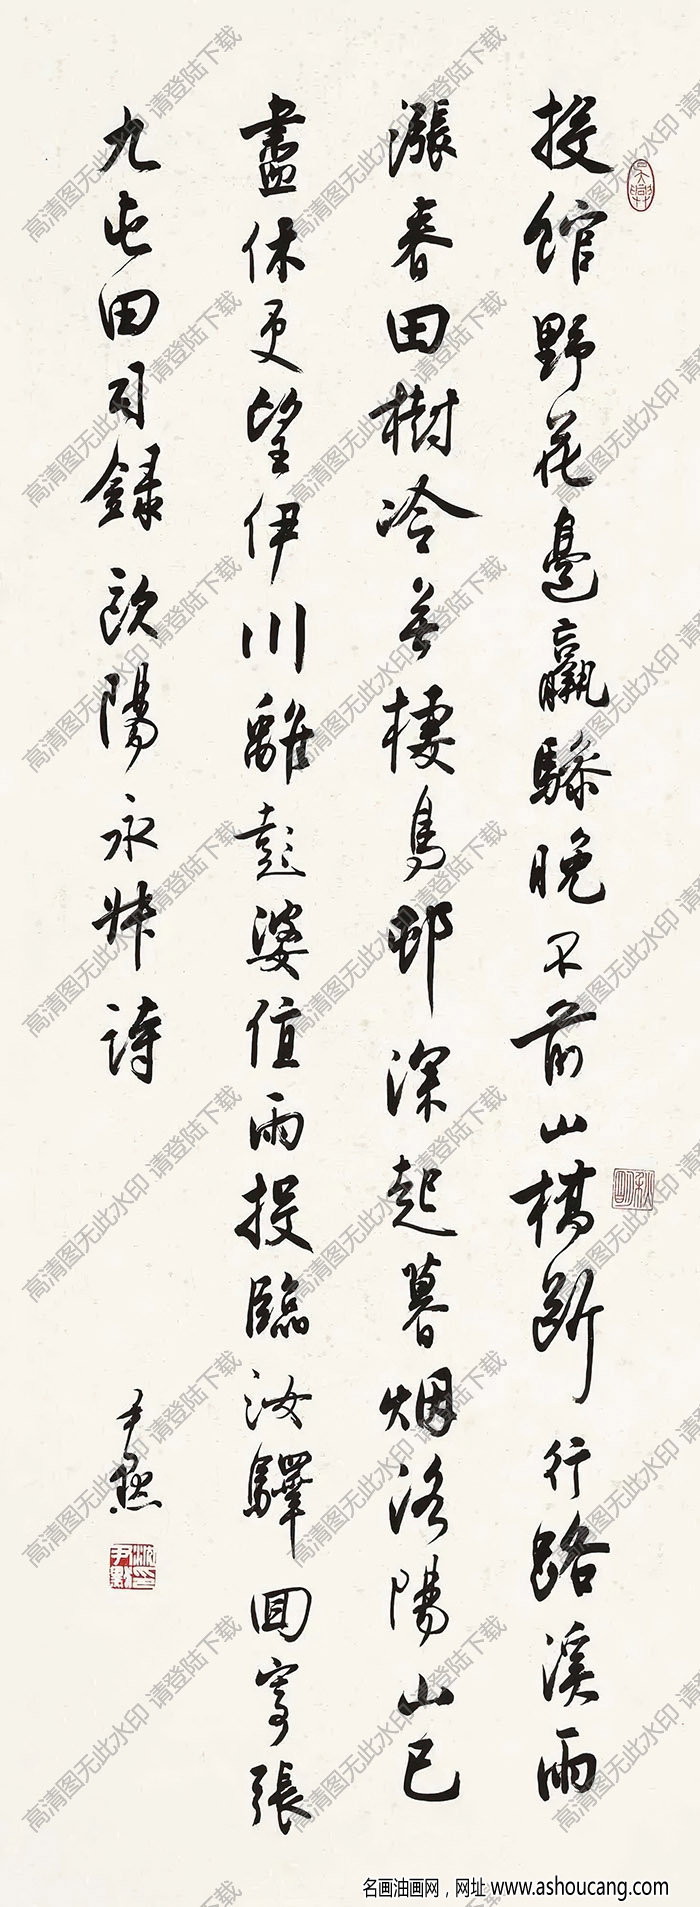 投館野花邊羸驂晚不前山橋斷行路溪雨
漲春田樹冷無棲鳥邨深起暮烟洛陽山已
盡休更望伊川離彭婆值雨投臨汝驛回寄張
九屯田司錄歐陽永叔詩
尹默
吳興
秋明
高清图无此水印 请登陆下载
名画油画网，网址 www.ashoucang.com